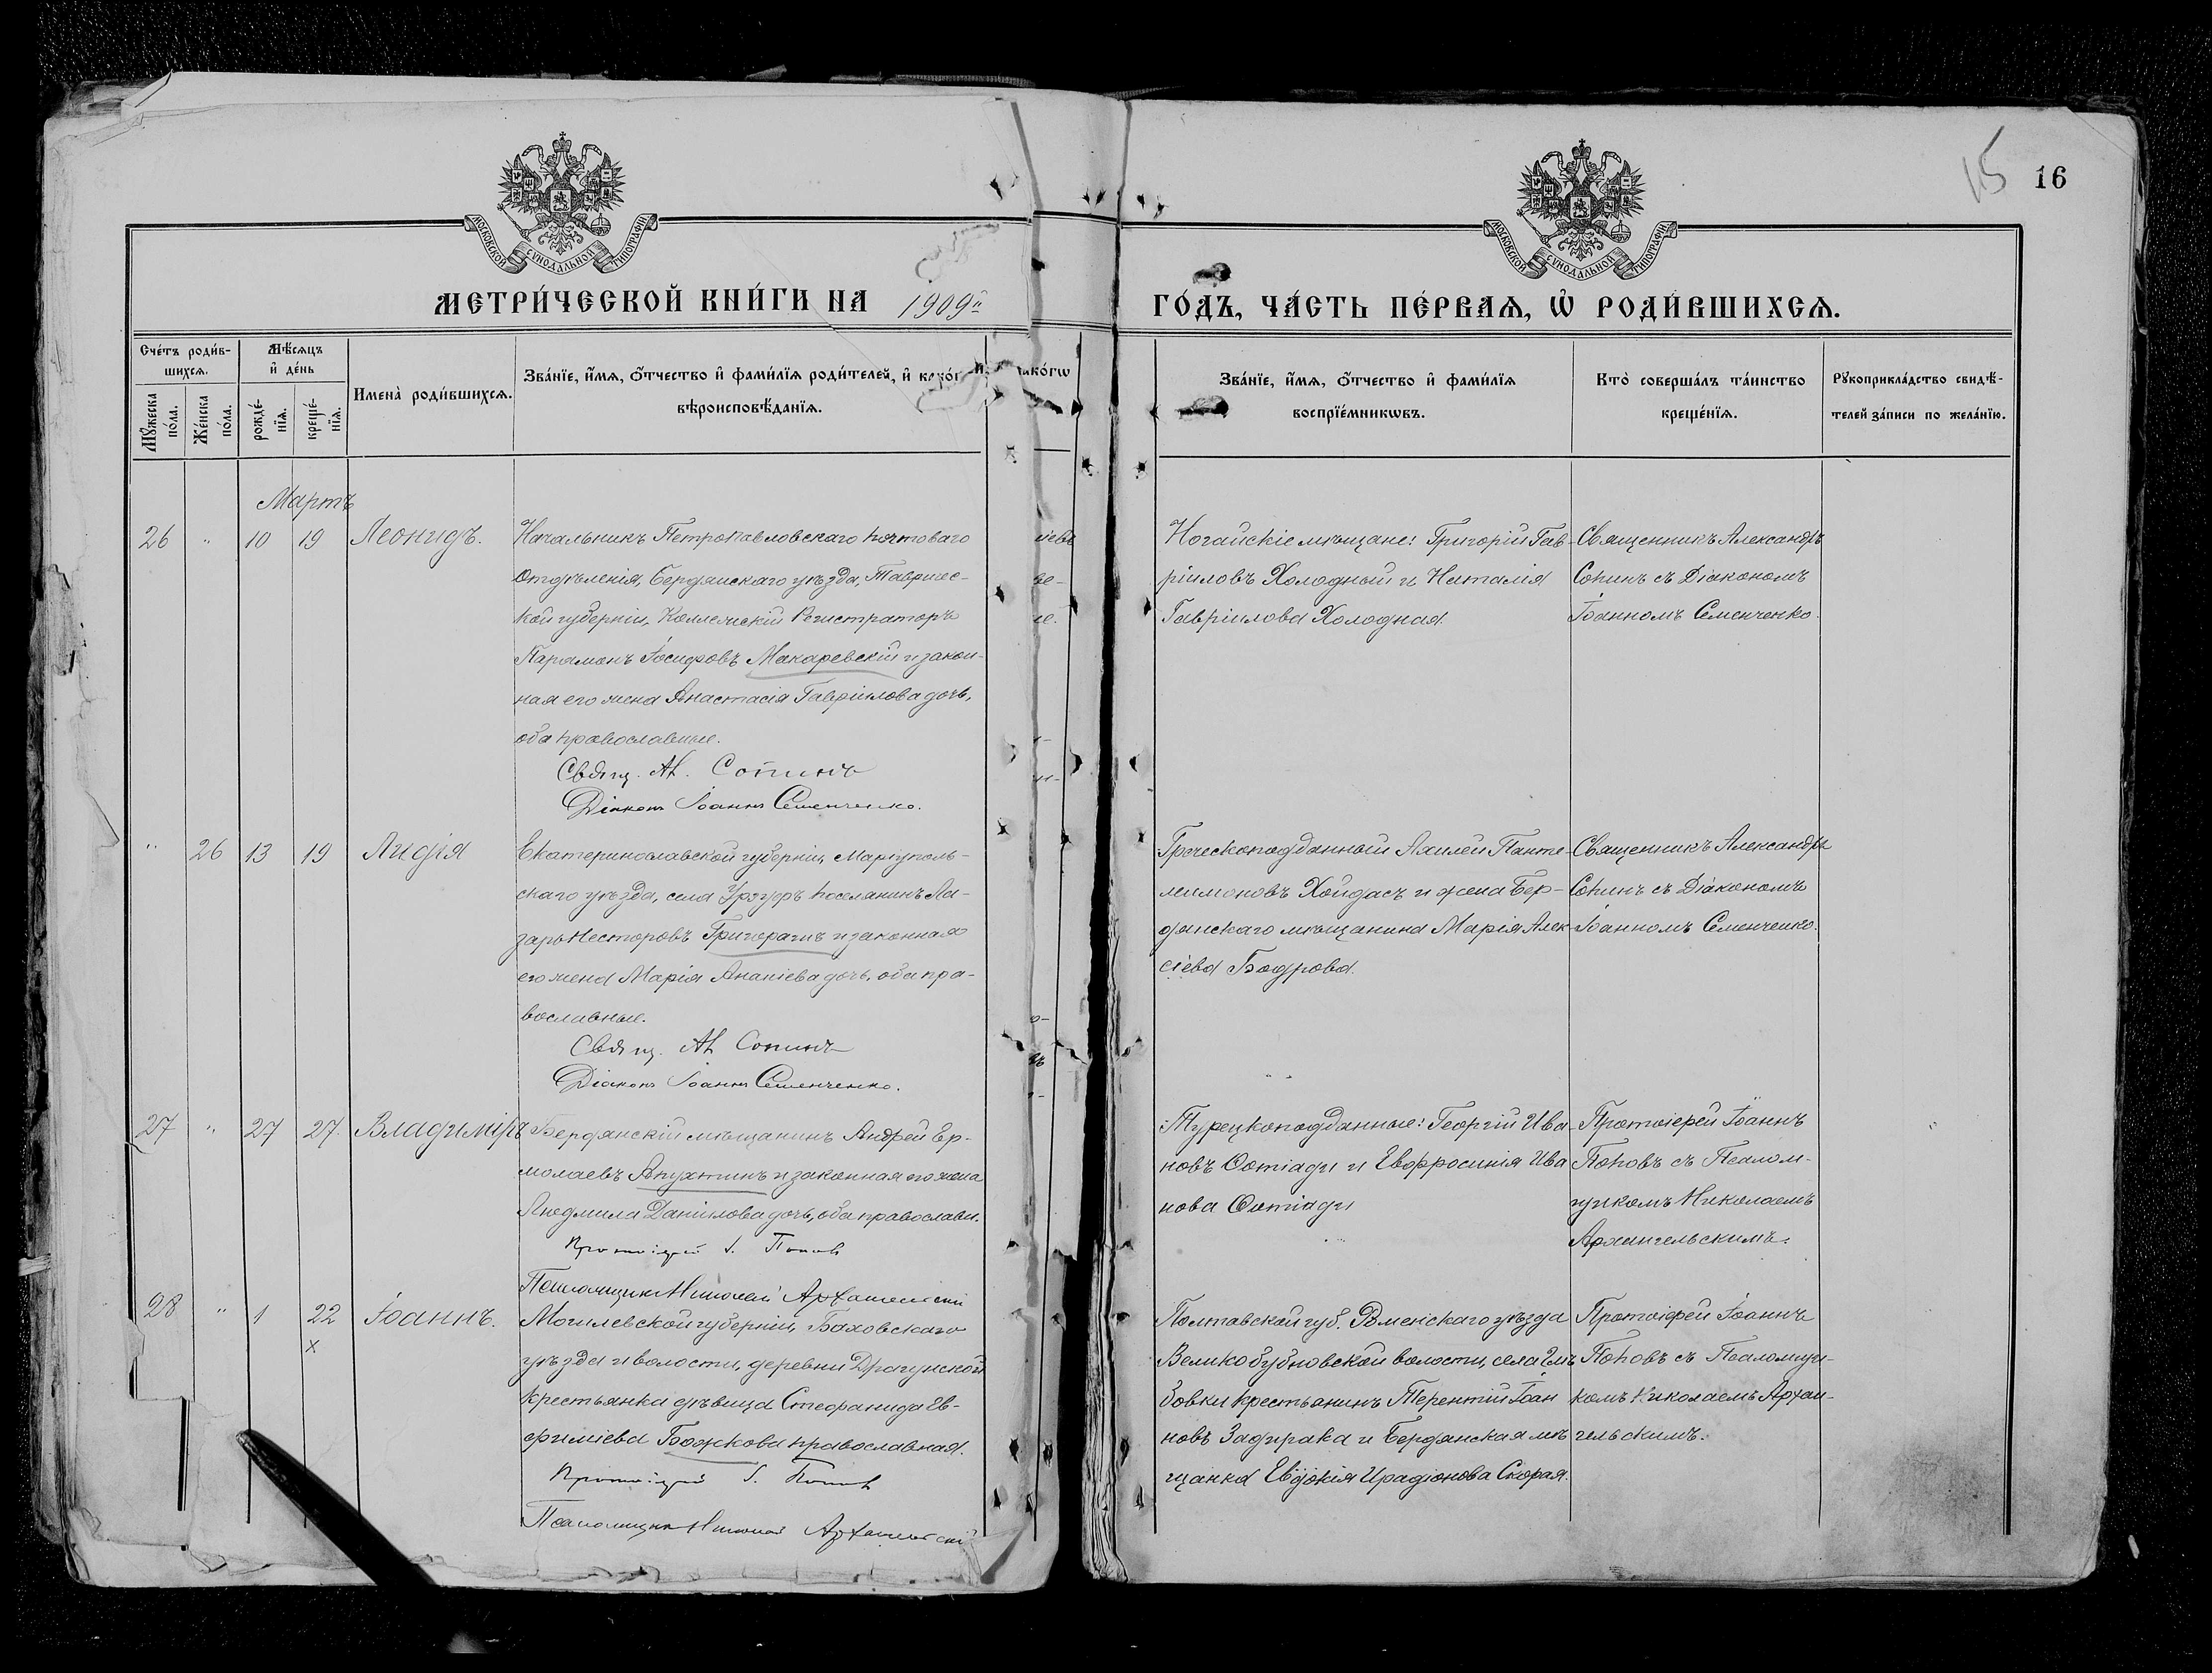 15
16
МОСКОВСКОЙ СѴНОДАЛЬНОЙ ТИПОГРАФІИ
МОСКОВСКОЙ СѴНОДАЛЬНОЙ ТИПОГРАФІИ
МЕТРИ́ЧЕСКОЙ КНИ́ГИ НА 1909й
ГО́ДЪ, ЧА́СТЬ ПЕ́РВАЯ, Ѡ҆ РОДИ́ВШИХСЯ.
Сче́тъ роди́в-
шихся.
Мѣ́сяцъ
и҆ де́нь
Мꙋ́жеска по́ла.
Же́нска по́ла.
рожде́-
нїя.
креще́-
нїя.
Имена̀ роди́вшихся.
Зва́нїе, и҆́мя, ѻ҆́тчество и҆ фами́лїя роди́телей, и҆
вѣроисповѣ́данїя.
Зва́нїе, и҆́мя, ѻ҆́тчество и҆ фами́лїя
воспрїе́мникѡвъ.
Кто̀ соверша́лъ та́инство
креще́нїя.
Рꙋкоприкла́дство свидѣ́-
телей за́писи по жела́нїю.
Мартъ
26 " 10 19 Леонидъ.
Начальникъ Петропавловскаго почтоваго
Отдѣленія, Бердянскаго уѣзда, Тавричес-
кой губерніи, Коллежскій Регистраторъ
Парамонъ Іосифовъ Макаревскій и закон-
ная его жена Анастасія Гавріилова дочь,
оба православные.
Свящ. Ал. Сопинъ
Діаконъ Іоаннъ Семенченко.
Ногайскіе мѣщане: Григорій Гав-
ріиловъ Холодный и Наталія
Гавріилова Холодная.
Священникъ Александръ
Сопинъ съ Діакономъ
Іоанномъ Семенченко.
" 26 13 19 Лидія
Екатеринославской губерніи, Маріуполь-
скаго уѣзда, села Урзуфъ поселянинъ Ла-
зарь Несторовъ Григорагиъ и законная
его жена Марія Ананіева дочь, оба пра-
вославные.
Свящ. Ал Сопинъ
Діаконъ Іоаннъ Семенченко.
Греческоподданный Ахилей Панте-
лимоновъ Хойдасъ и жена Бер-
дянскаго мѣщанина Марія Алек-
сіева Бодрова.
Священникъ Александръ
Сопинъ съ Діакономъ
Іоанномъ Семенченко.
27 " 27 27 Владиміръ
Бердянскій мѣщанинъ Андрей Ер-
молаевъ Апухтинъ и законная его жена
Людмила Даніилова дочь, оба православн.
Протоіерей І. Поповъ
Псаломщикъ Николай Архангельскій
Турецкоподданные: Георгій Ива-
новъ Фотіади и Евфросинія Ива
нова Фотіади
Протоіерей Іоаннъ
Поповъ съ Псалом-
щикомъ Николаемъ
Архангельскимъ.
28 " 1 22 Іоаннъ.
x
Могилевской губерніи, Быховскаго
уѣзда и волости, деревни Драгунской
крестьянка дѣвица Стефанида Ев-
фиміева Божкова православная.
Протоіерей І. Поповъ
Псаломщикъ Николай Архангельскій
Полтавской губ. Роменскаго уѣзда
Великобубновской волости, села
бовки крестьянинъ Терентій Іоан
новъ Задирака и Бердянская мѣ
щанка Евдокія Ирадіонова Скорая.
Протоіерей Іоаннъ
Поповъ съ Псаломщи-
комъ Николаемъ Архан-
гельскимъ.